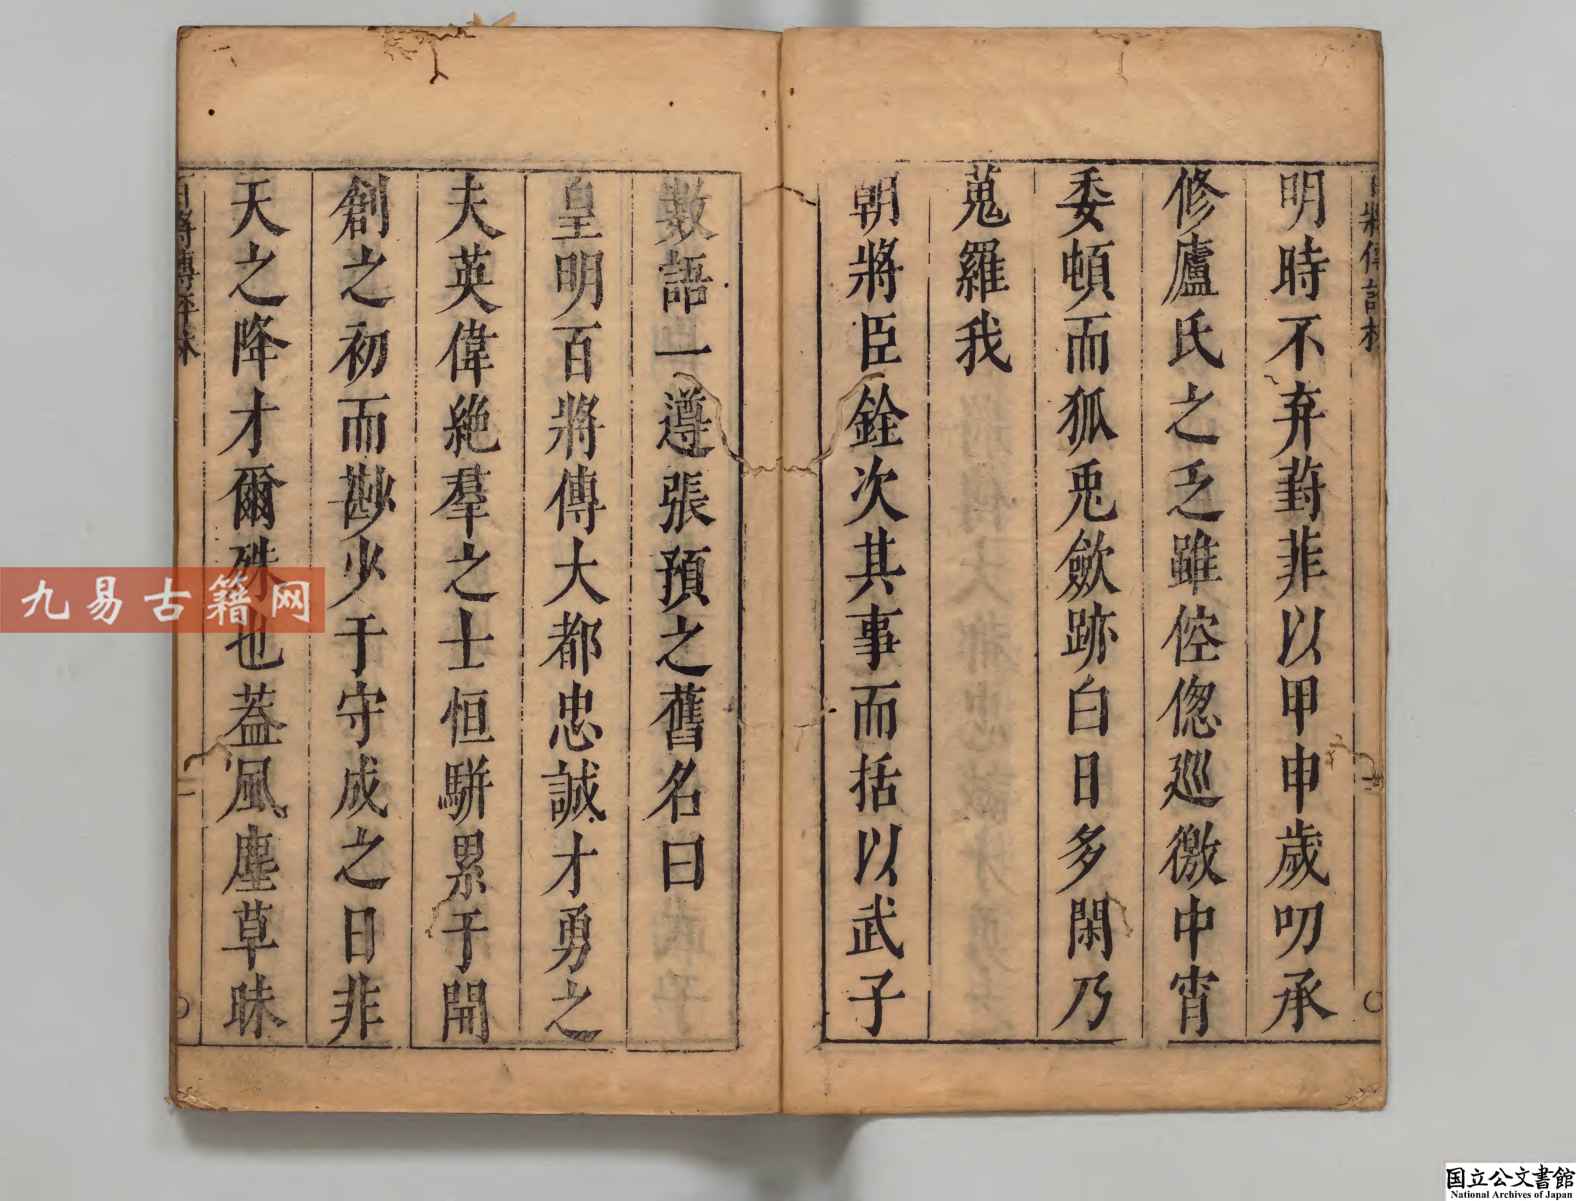 明時不弃葑菲以甲申歲叨承
修廬氏之乏雖倥偬巡徼中宵
委頓而狐兎歛跡白日多閑乃
蒐羅我
朝將臣銓次其事而括以武子
數語一遵張預之舊名曰
皇明百將傳大都忠誠才勇之
夫英偉絶羣之士恒駢累于開
創之初而尠少于守成之日非
天之降才爾殊也葢風塵草昧
九易古籍网
国立公文書館
National Archives of Japan